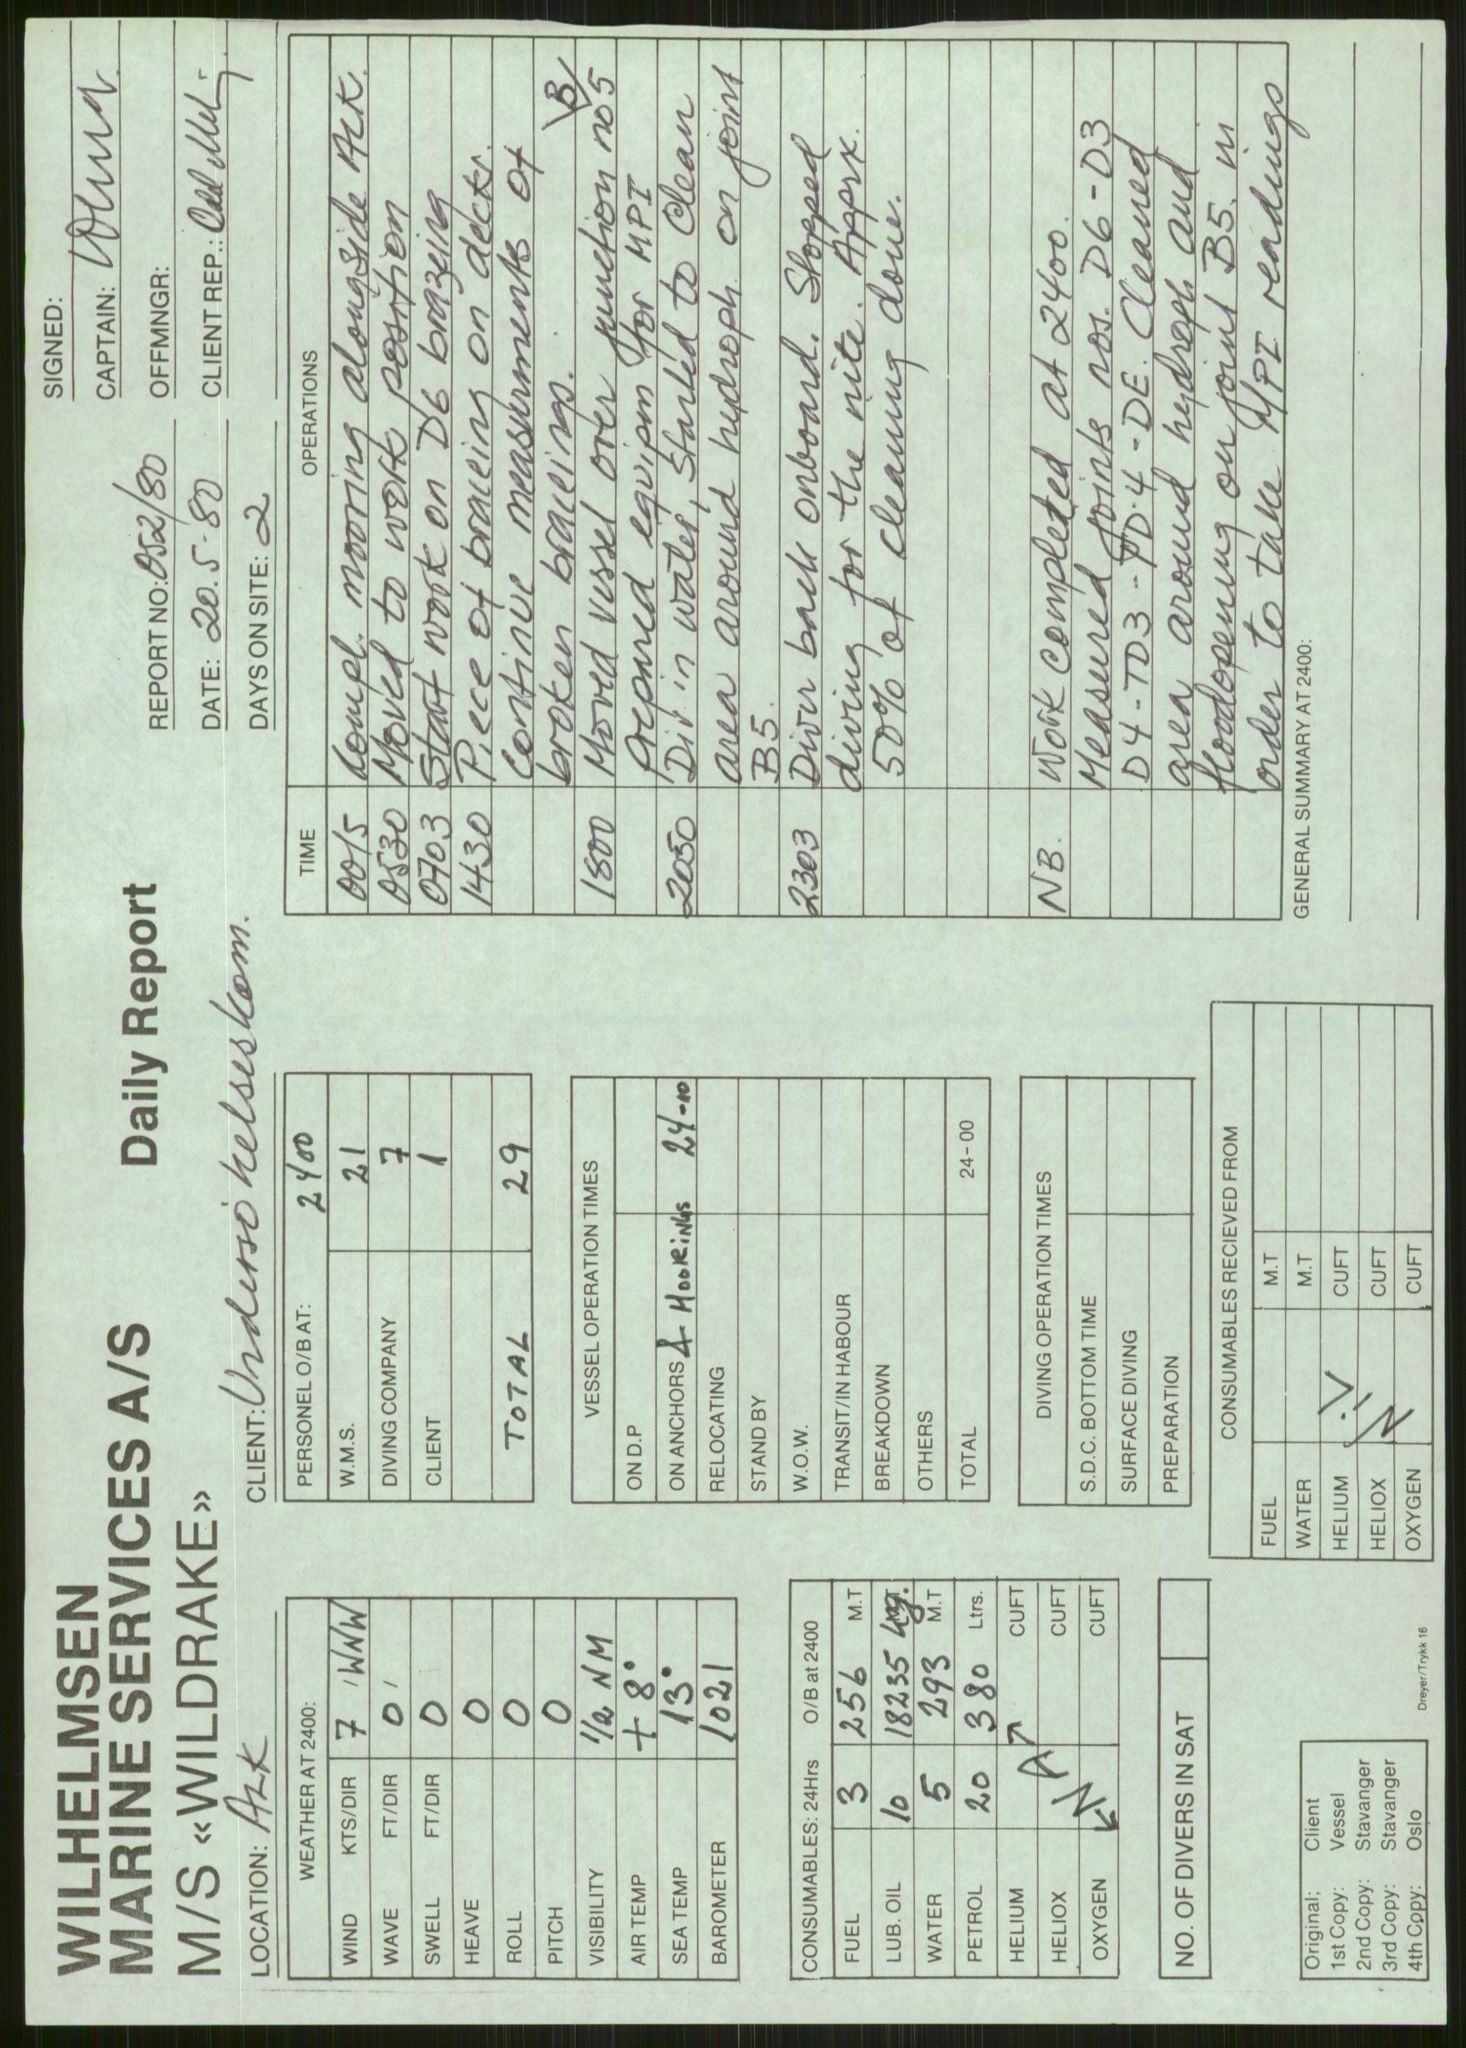 WILHELMSEN
MARINE SERVICES A/S Daily Report
M/S «WILDRAKE»
LOCATION: ALK
CLIENT: Undersøkelseskom.
REPORT NO: 052/80
DATE: 20.5-80
DAYS ON SITE: 2
SIGNED:
CAPTAIN:
OFFMNGR:
CLIENT REP.:
WEATHER AT 2400:
WIND KTS/DIR 7 / WNW
WAVE FT/DIR 0 /
SWELL FT/DIR 0
HEAVE 0
ROLL 0
PITCH 0
VISIBILITY 1/2 NM
AIR TEMP + 8°
SEA TEMP 13°
BAROMETER 1021
CONSUMABLES: 24Hrs O/B at 2400
FUEL 3 256 M.T
LUB. OIL 10 18235 kg.
WATER 5 293 M.T
PETROL 20 380 Ltrs.
HELIUM CUFT
HELIOX CUFT
OXYGEN CUFT
NO. OF DIVERS IN SAT
Original; Client
1st Copy: Vessel
2nd Copy: Stavanger
3rd Copy: Stavanger
4th Copy: Oslo
Dreyer/Trykk 16
PERSONEL O/B AT: 2400
W.M.S. 21
DIVING COMPANY 7
CLIENT 1
TOTAL 29
VESSEL OPERATION TIMES
ON D.P
ON ANCHORS & MOORINGS 24-00
RELOCATING
STAND BY
W.O.W.
TRANSIT/IN HABOUR
BREAKDOWN
OTHERS
TOTAL 24-00
DIVING OPERATION TIMES
S.D.C. BOTTOM TIME
SURFACE DIVING
PREPARATION
CONSUMABLES RECIEVED FROM
FUEL M.T
WATER M.T
HELIUM CUFT
HELIOX CUFT
OXYGEN CUFT
TIME OPERATIONS
0015 Compl. mooring alongside ALK.
0530 Moved to work position
0703 Start work on D6 brazeing
1430 Piece of braceing on deck.
Continue measurements of
broken braceings. B/
1800 Moved vessel over junction no 5
Prepared equipm for MPI
2050 Div. in water, Started to Clean
area around hydroph. on joint
B5.
2303 Diver back onboard. Stopped
diving for the nite. Apprx.
50% of cleaning done.
NB. Work completed at 2400.
Measured joints nos. D6-D3
D4-TD3-TD4-DE. Cleaned
area around hydroph and
floodopening on joint B5. in
order to take MPI readings
GENERAL SUMMARY AT 2400: